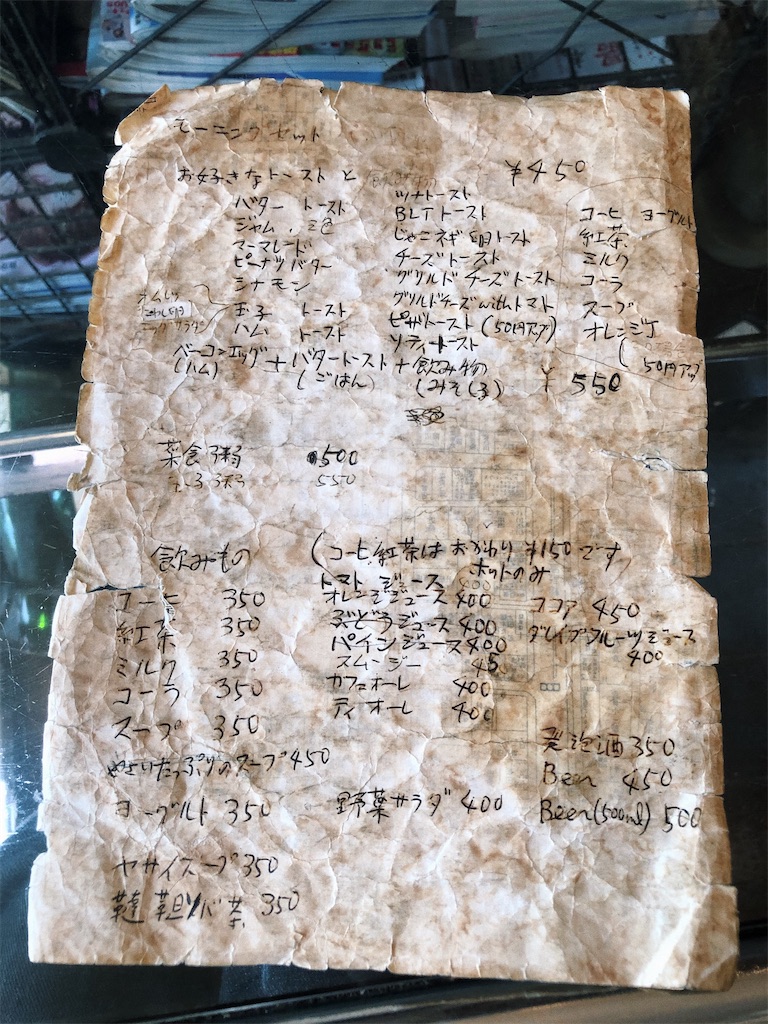 モーニングセット
お好きなトーストと 飲み物 ¥450
バター トースト
ジャム
マーマレード
ピーナツバター
シナモン
玉子 トースト
ハム トースト
オムレツ
ツナトースト
BLTトースト
じゃこネギ トースト
チーズトースト
グリルドチーズトースト
グリルドチーズwithトマト
ピザトースト(50円アップ)
ソティートースト
コーヒ ヨーグルト
紅茶
ミルク
コーラ
スープ
オレンジJ
50円アップ
ベーコンエッグ + バタートースト + 飲み物
(ハム) (ごはん) (みそしる) ¥550
薬食粥 500
玉子粥 550
飲みもの (コーヒ、紅茶は おかわり ¥150です
ホットのみ
コーヒ 350
紅茶 350
ミルク 350
コーラ 350
スープ 350
やさいたっぷりのスープ 450
ヨーグルト 350
ヤサイスープ 350
韃靼ソバ茶 350
トマトジュース 400
オレンジジュース 400
ぶどうジュース 400
パインジュース 400
スムージー 45
カフェオーレ 400
ティオーレ 400
野菜サラダ 400
ココア 450
グレイプフルーツジュース
400
発泡酒 350
Beer 450
Beer(500ml) 500